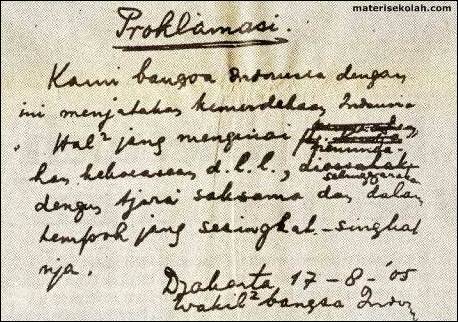 materisekolah.com
Proklamasi.
Kami bangsa Indonesia dengan
ini menjatakan kemerdekaan Indonesia
Hal² jang mengenai
pemindahan
kan kekoeasaan d.l.l., diselenggarakan
dengan tjara saksama dan dalam
tempoh jang sesingkat-singkat
nja.
Djakarta, 17-8-'05
Wakil² bangsa Indon